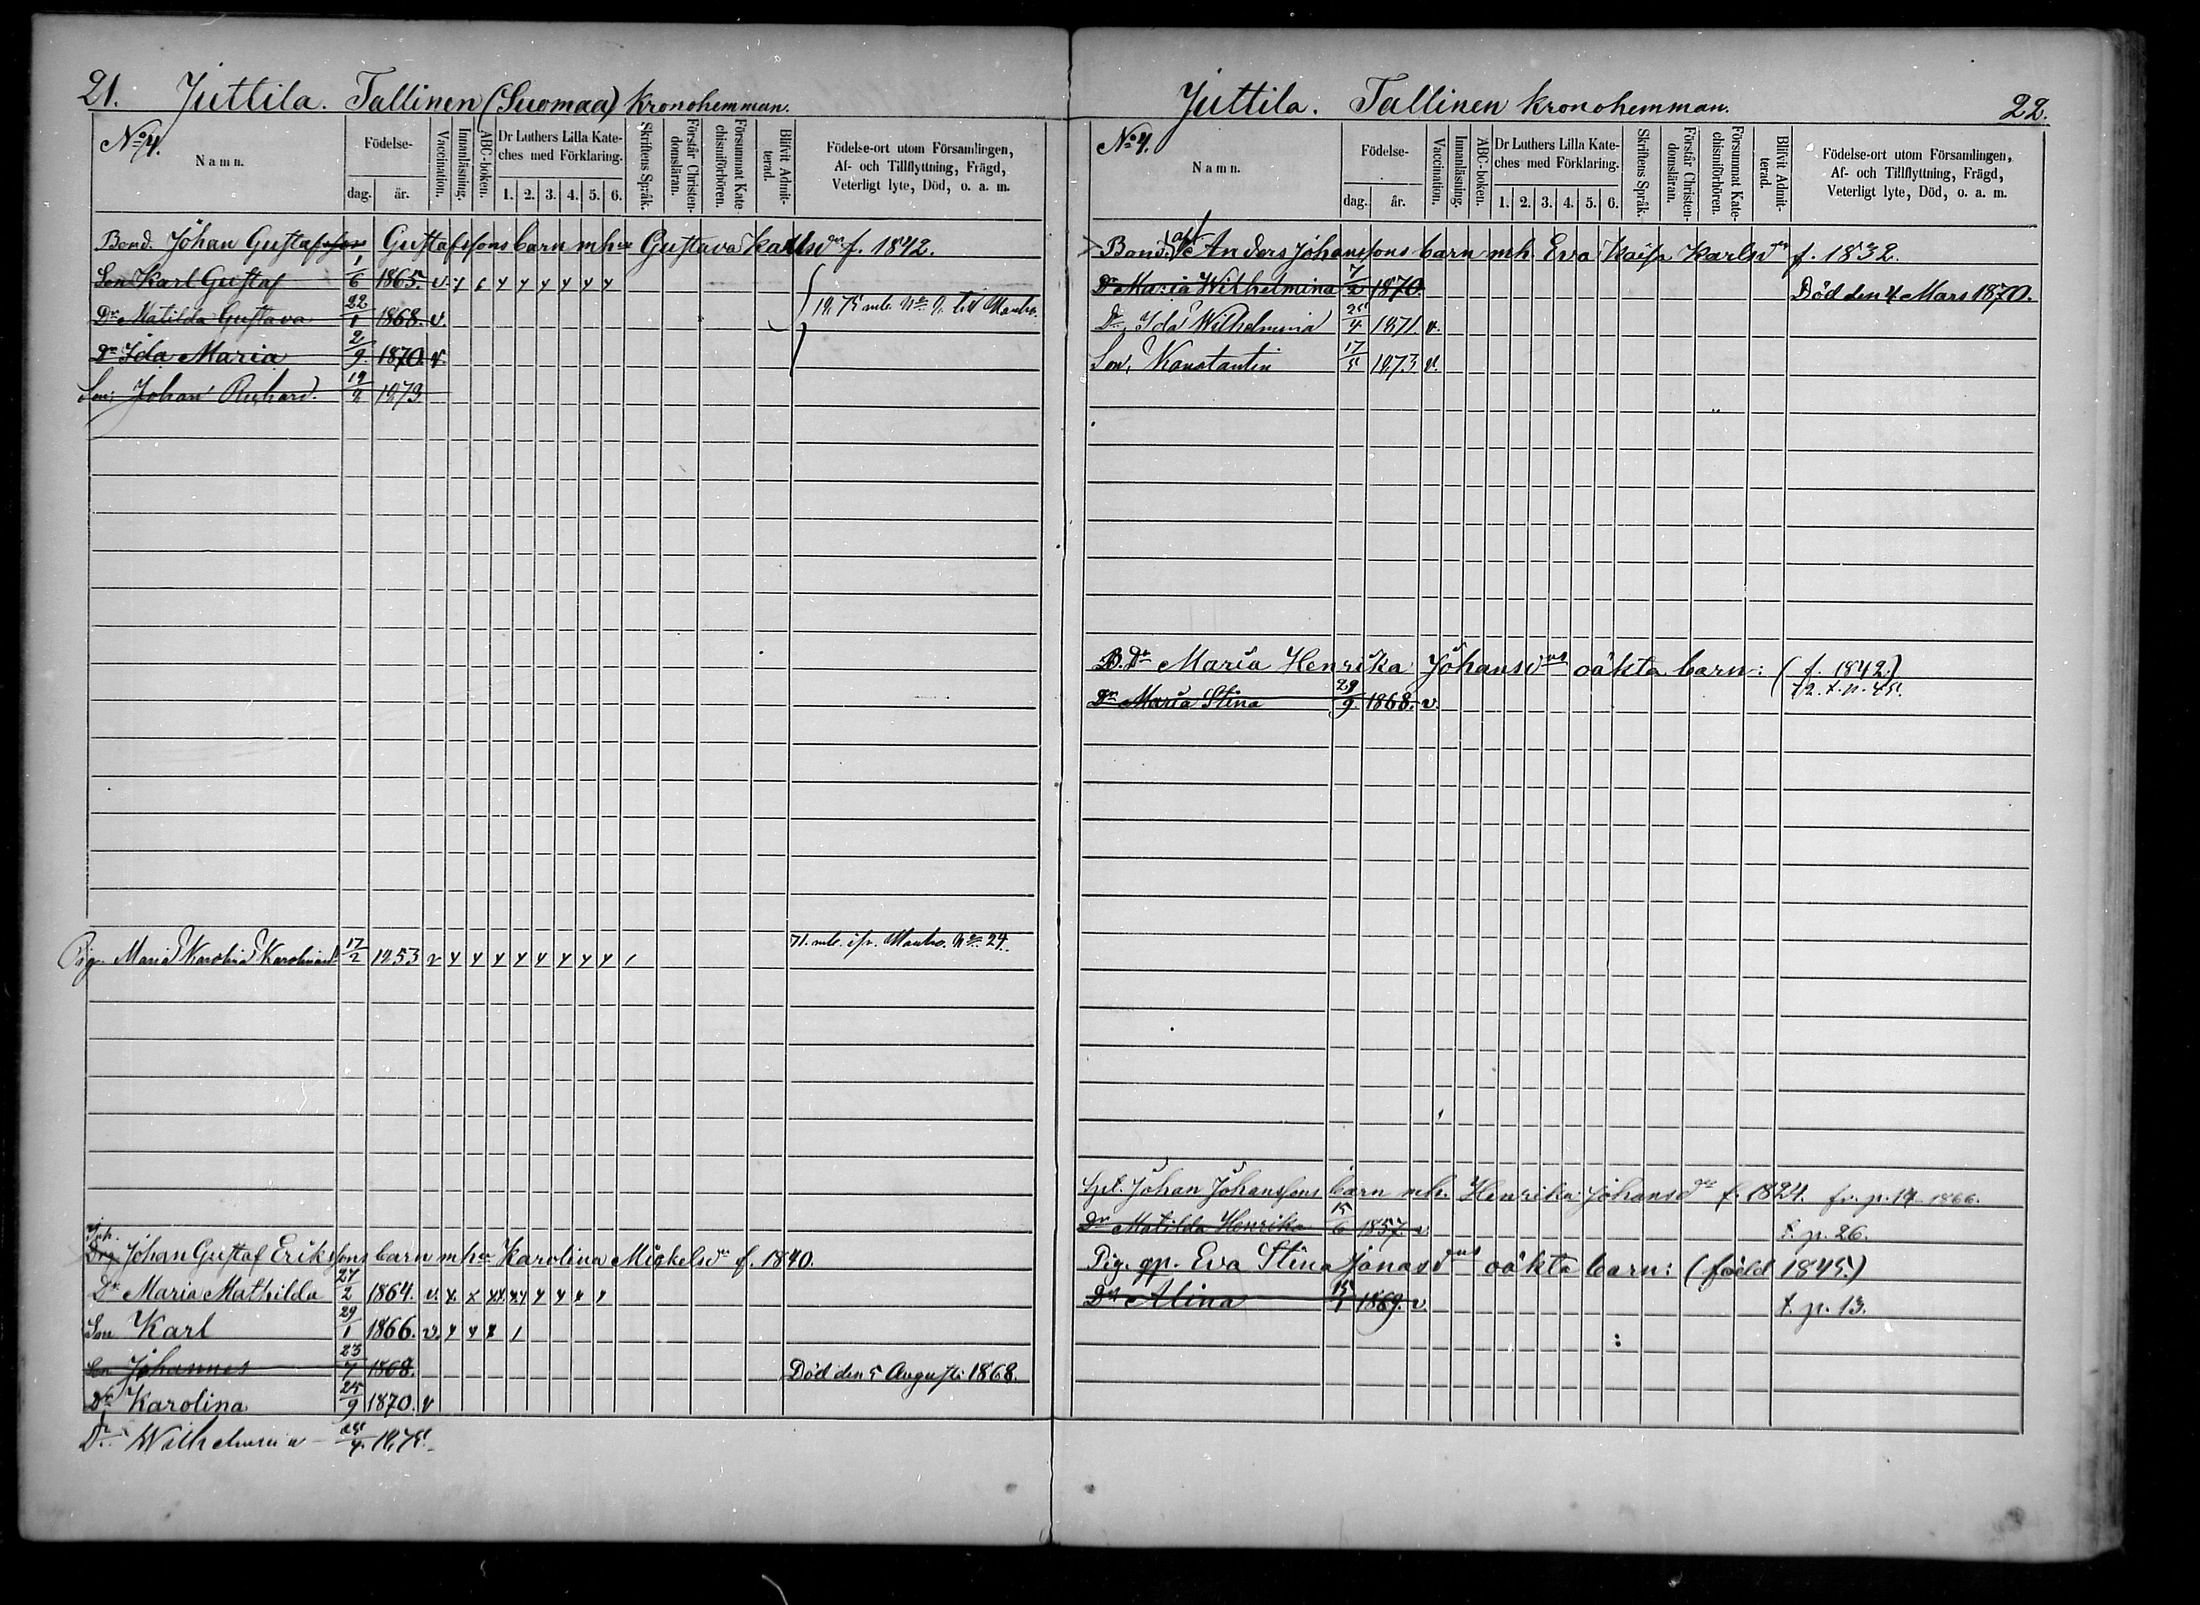 21. Juttila. Tallinen (Suomaa) kronohemman.
No 4.
Namn.
Födelse-
dag. år.
Vaccination.
Innanläsning.
ABC-boken.
Dr Luthers Lilla Kate-
ches med Förklaring.
1. 2. 3. 4. 5. 6.
Skriftens Språk.
Förstår Christen-
domsläran.
Försummat Kate-
chismiförhören.
Blifvit Admit-
terad.
Födelse-ort utom Församlingen,
Af- och Tillflyttning, Frägd,
Veterligt lyte, Död, o. a. m.
Bond. Johan Gustafsson Gustafssons barn mhu Gustava Karlsdr f. 1842.
Son Karl Gustaf 1/6 1865. v.
Dr Matilda Gustava 22/1 1868. v.
Dr Ida Maria 2/9 1870. v.
Son, Johan Richard. 19/2 1873
Pig. Maria Karolina 17/2 1853 v
71. mb. ifr. No 24.
Inh.
Johan Gustaf Erikssons barn mhu Karolina Mickelsdr f. 1840.
Dr Maria Mathilda 27/2 1864. v.
Son Karl 29/1 1866. v.
Son Johannes 23/7 1868. Död den 5 Augusti 1868.
Dr Karolina 25/9 1870. v
Dr Wilhelmina 1875.
Juttila. Tallinen kronohemman. 22.
No 4.
Namn.
Födelse-
dag. år.
Vaccination.
Innanläsning.
ABC-boken.
Dr Luthers Lilla Kate-
ches med Förklaring.
1. 2. 3. 4. 5. 6.
Skriftens Språk.
Förstår Christen-
domsläran.
Försummat Kate-
chismiförhören.
Blifvit Admit-
terad.
Födelse-ort utom Församlingen,
Af- och Tillflyttning, Frägd,
Veterligt lyte, Död, o. a. m.
Bond. Anders Johanssons barn mh. Eva Kaisa Karlsdr f. 1832.
Dr Maria Wilhelmina 1870. Död den 4 Mars 1870.
Dr, Ida Wilhelmina 25/4 1871. v.
Son, Konstantin 17/5 1873 v.
B. Dr Maria Henrika Johansdrs oäkta barn: (f. 1842)
Dr Maria Stina 29/9 1868. v. 72. t. p. 45.
Johan Johanssons barn mh. Henrika Johansdr f. 1824. fr. p. 19 1866.
Dr Matilda Henrika 15/6 1857. v t. p. 26.
Pig. gp. Eva Stina Jonasdrs oäkta barn: (född 1845.)
Dr Alina 15/1 1869. v. t. p. 13.